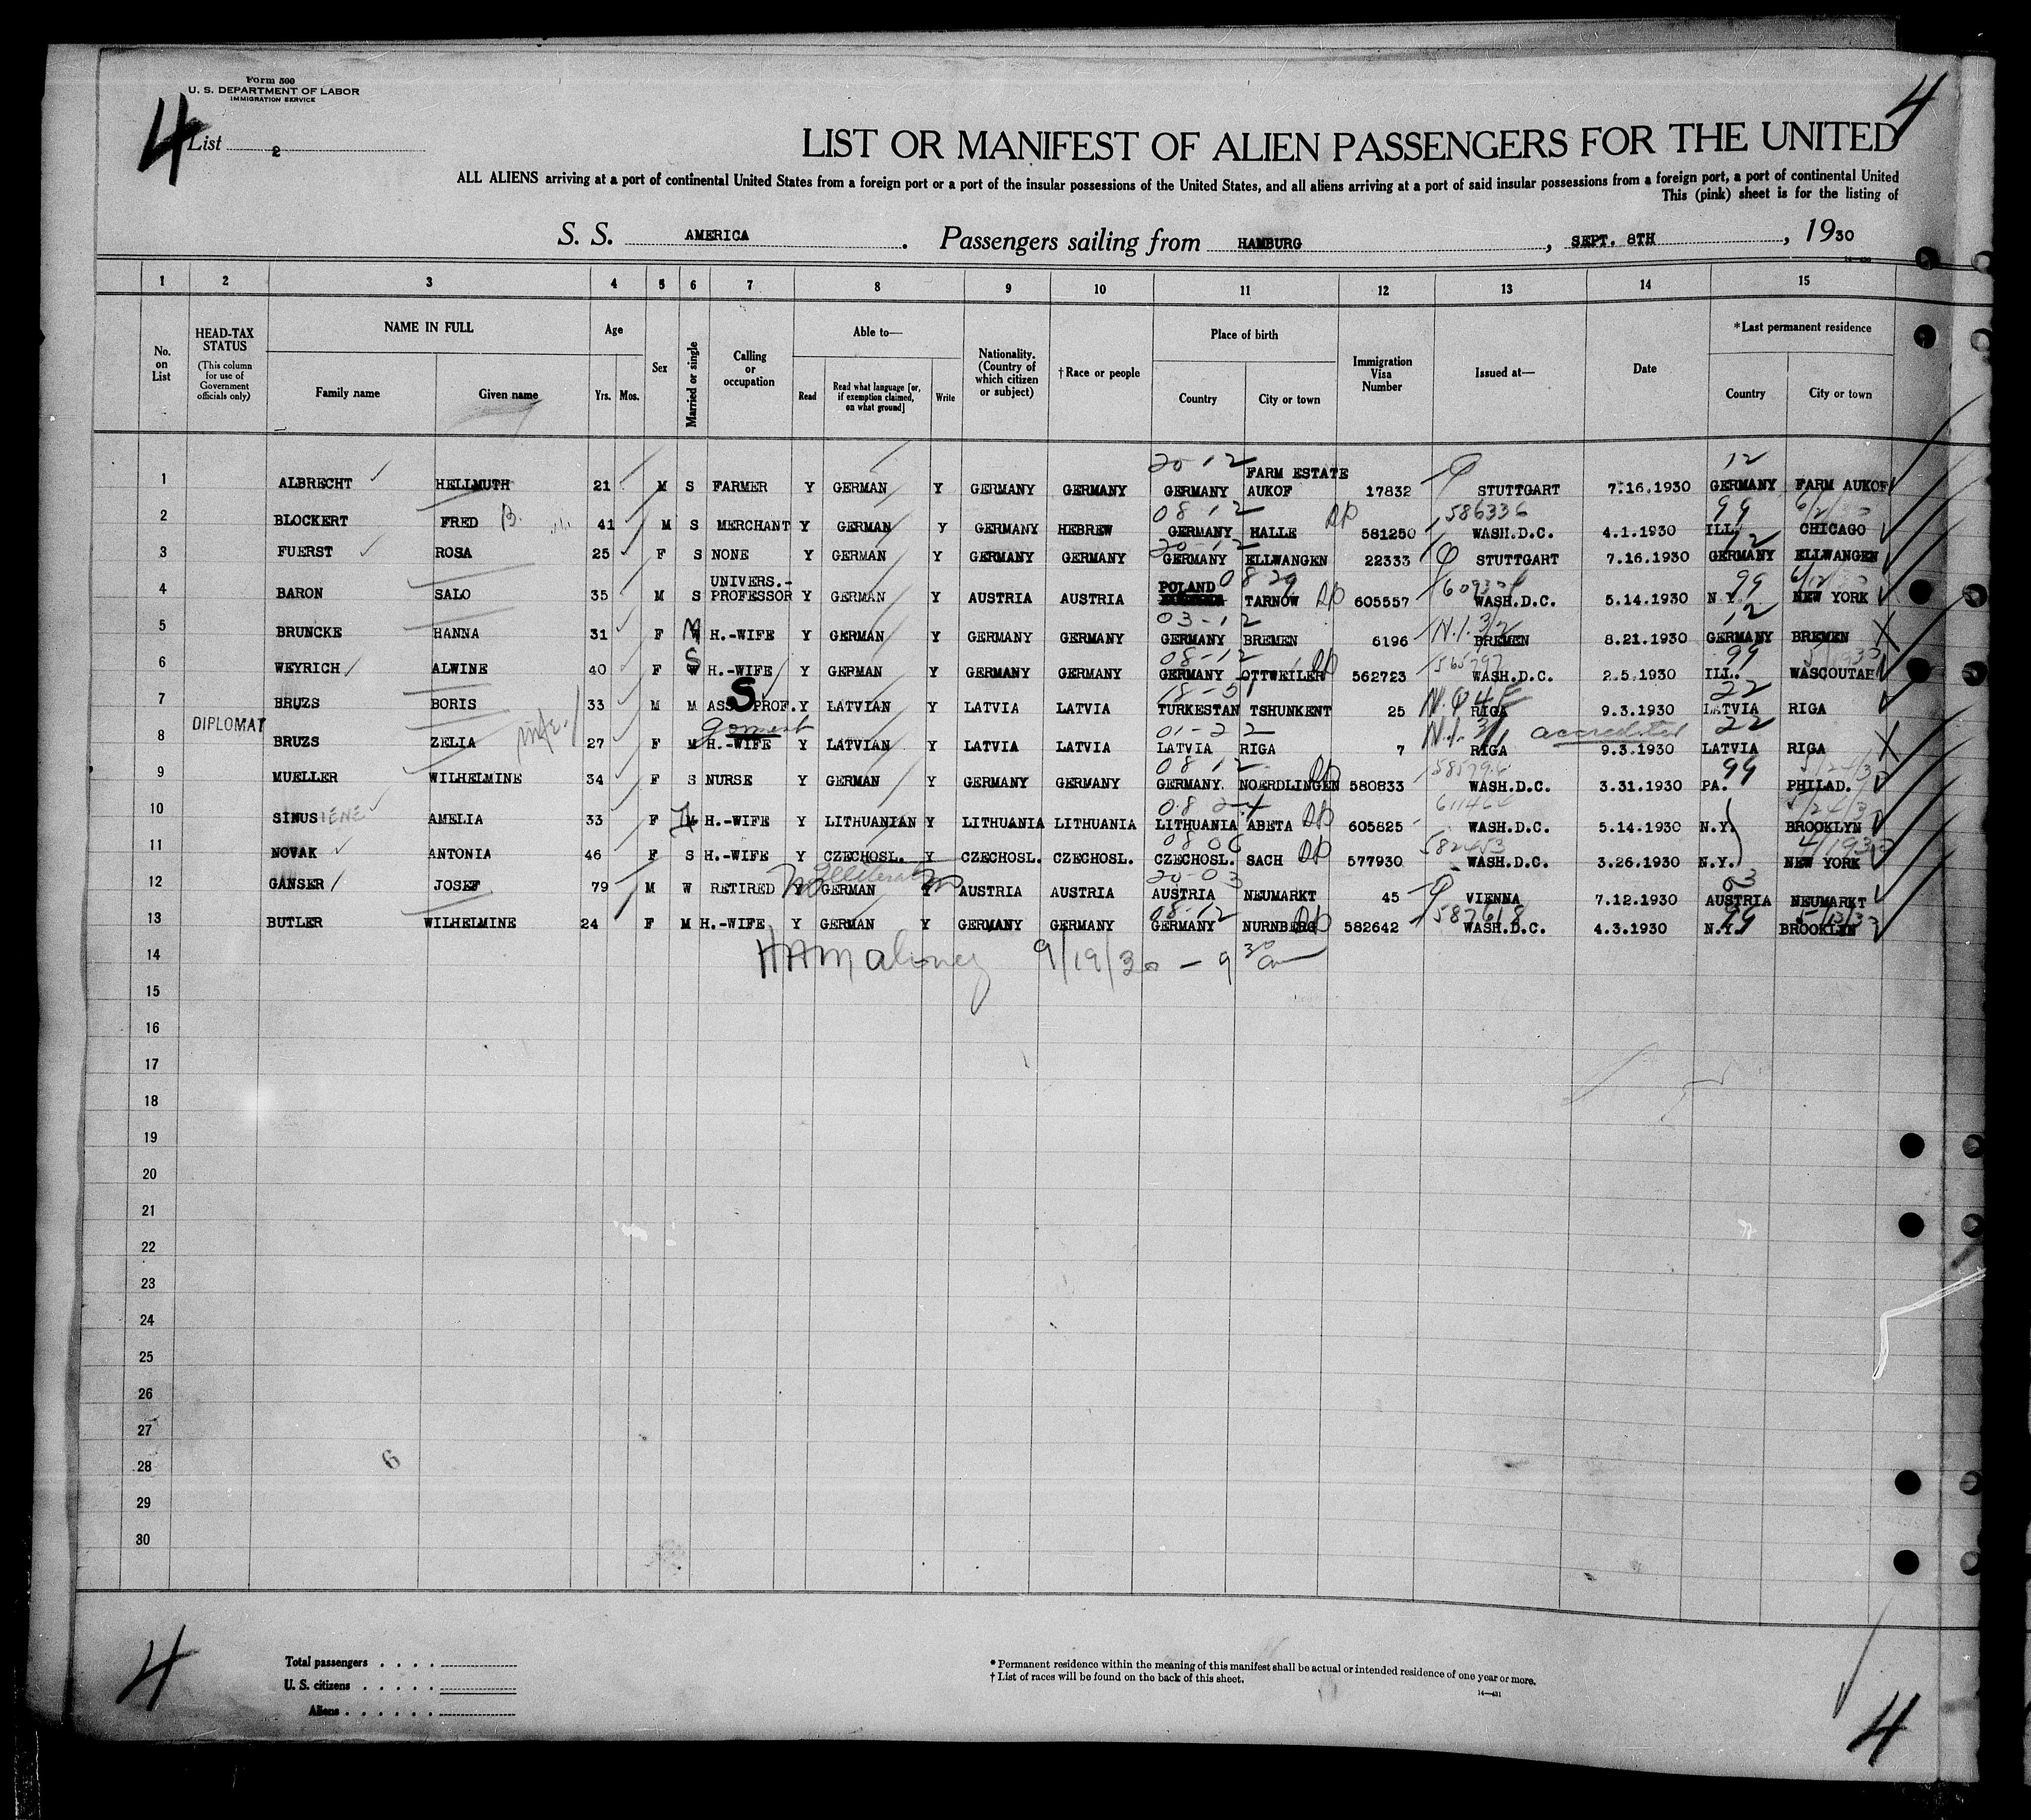 Form 500
U. S. DEPARTMENT OF LABOR
IMMIGRATION SERVICE
4 4
List 2
LIST OR MANIFEST OF ALIEN PASSENGERS FOR THE UNITED
ALL ALIENS arriving at a port of continental United States from a foreign port or a port of the insular possessions of the United States, and all aliens arriving at a port of said insular possessions from a foreign port, a port of continental United
This (pink) sheet is for the listing of
S. S. AMERICA. Passengers sailing from HAMBURG, SEPT. 8TH, 1930
1 2 3 4 5 6 7 8 9 10 11 12 13 14 15
No. on List
HEAD-TAX STATUS
(This column for use of Government officials only)
NAME IN FULL
Family name Given name
Age
Yrs. Mos.
Sex
Married or single
Calling or occupation
Able to—
Read
Read what language [or, if exemption claimed, on what ground]
Write
Nationality. (Country of which citizen or subject)
†Race or people
Place of birth
Country City or town
Immigration Visa Number
Issued at—
Date
*Last permanent residence
Country City or town
20-12 FARM ESTATE 12
1 ALBRECHT HELLMUTH 21 M S FARMER Y GERMAN Y GERMANY GERMANY GERMANY AUKOF 17832 STUTTGART 7.16.1930 GERMANY FARM AUKOF
08-12 DP 586336 99
2 BLOCKERT FRED B. 41 M S MERCHANT Y GERMAN Y GERMANY HEBREW GERMANY HALLE 581250 WASH.D.C. 4.1.1930 ILL. CHICAGO
20-12 12
3 FUERST ROSA 25 F S NONE Y GERMAN Y GERMANY GERMANY GERMANY ELLWANGEN 22333 STUTTGART 7.16.1930 GERMANY ELLWANGEN
UNIVERS.- POLAND 99
4 BARON SALO 35 M S PROFESSOR Y GERMAN Y AUSTRIA AUSTRIA TARNOW DP 605557 WASH.D.C. 5.14.1930 N.Y. NEW YORK
03-12 N.I. 3/2 12
5 BRUNCKE HANNA 31 F M H.-WIFE Y GERMAN Y GERMANY GERMANY GERMANY BREMEN 6196 BREMEN 8.21.1930 GERMANY BREMEN X
S 08-12 DP 565797 99
6 WEYRICH ALWINE 40 F W H.-WIFE Y GERMAN Y GERMANY GERMANY GERMANY OTTWEILER 562723 WASH.D.C. 2.5.1930 ILL. WASCOUTAH
S 18-51 22
7 BRUZS BORIS 33 M M ASS. PROF. Y LATVIAN Y LATVIA LATVIA TURKESTAN TSHUNKENT 25 RIGA 9.3.1930 LATVIA RIGA
DIPLOMAT wife 01-22 N.I. 3/1 accredited 22
8 BRUZS ZELIA 27 F M H.-WIFE Y LATVIAN Y LATVIA LATVIA LATVIA RIGA 7 RIGA 9.3.1930 LATVIA RIGA X
08-12 DP 99
9 MUELLER WILHELMINE 34 F S NURSE Y GERMAN Y GERMANY GERMANY GERMANY. NOERDLINGEN 580833 WASH.D.C. 3.31.1930 PA. PHILAD.
08 24 DP
10 SINUSIENE AMELIA 33 F M H.-WIFE Y LITHUANIAN Y LITHUANIA LITHUANIA LITHUANIA ABETA 605825 WASH.D.C. 5.14.1930 N.Y. BROOKLYN
08 06 DP 582453
11 NOVAK ANTONIA 46 F S H.-WIFE Y CZECHOSL. Y CZECHOSL. CZECHOSL. CZECHOSL. SACH 577930 WASH.D.C. 3.26.1930 N.Y. NEW YORK
Illiterate 20-03 03
12 GANSER JOSEF 79 M W RETIRED Y GERMAN Y AUSTRIA AUSTRIA AUSTRIA NEUMARKT 45 VIENNA 7.12.1930 AUSTRIA NEUMARKT
08-12 DP 587618 99
13 BUTLER WILHELMINE 24 F M H.-WIFE Y GERMAN Y GERMANY GERMANY GERMANY NURNBERG 582642 WASH.D.C. 4.3.1930 N.Y. BROOKLYN
14 HAMaloney 9/19/30 - 9 30 am
15
16
17
18
19
20
21
22
23
24
25
26
27
28 6
29
30
Total passengers
U. S. citizens
Aliens
* Permanent residence within the meaning of this manifest shall be actual or intended residence of one year or more.
† List of races will be found on the back of this sheet.
14—431
4 4